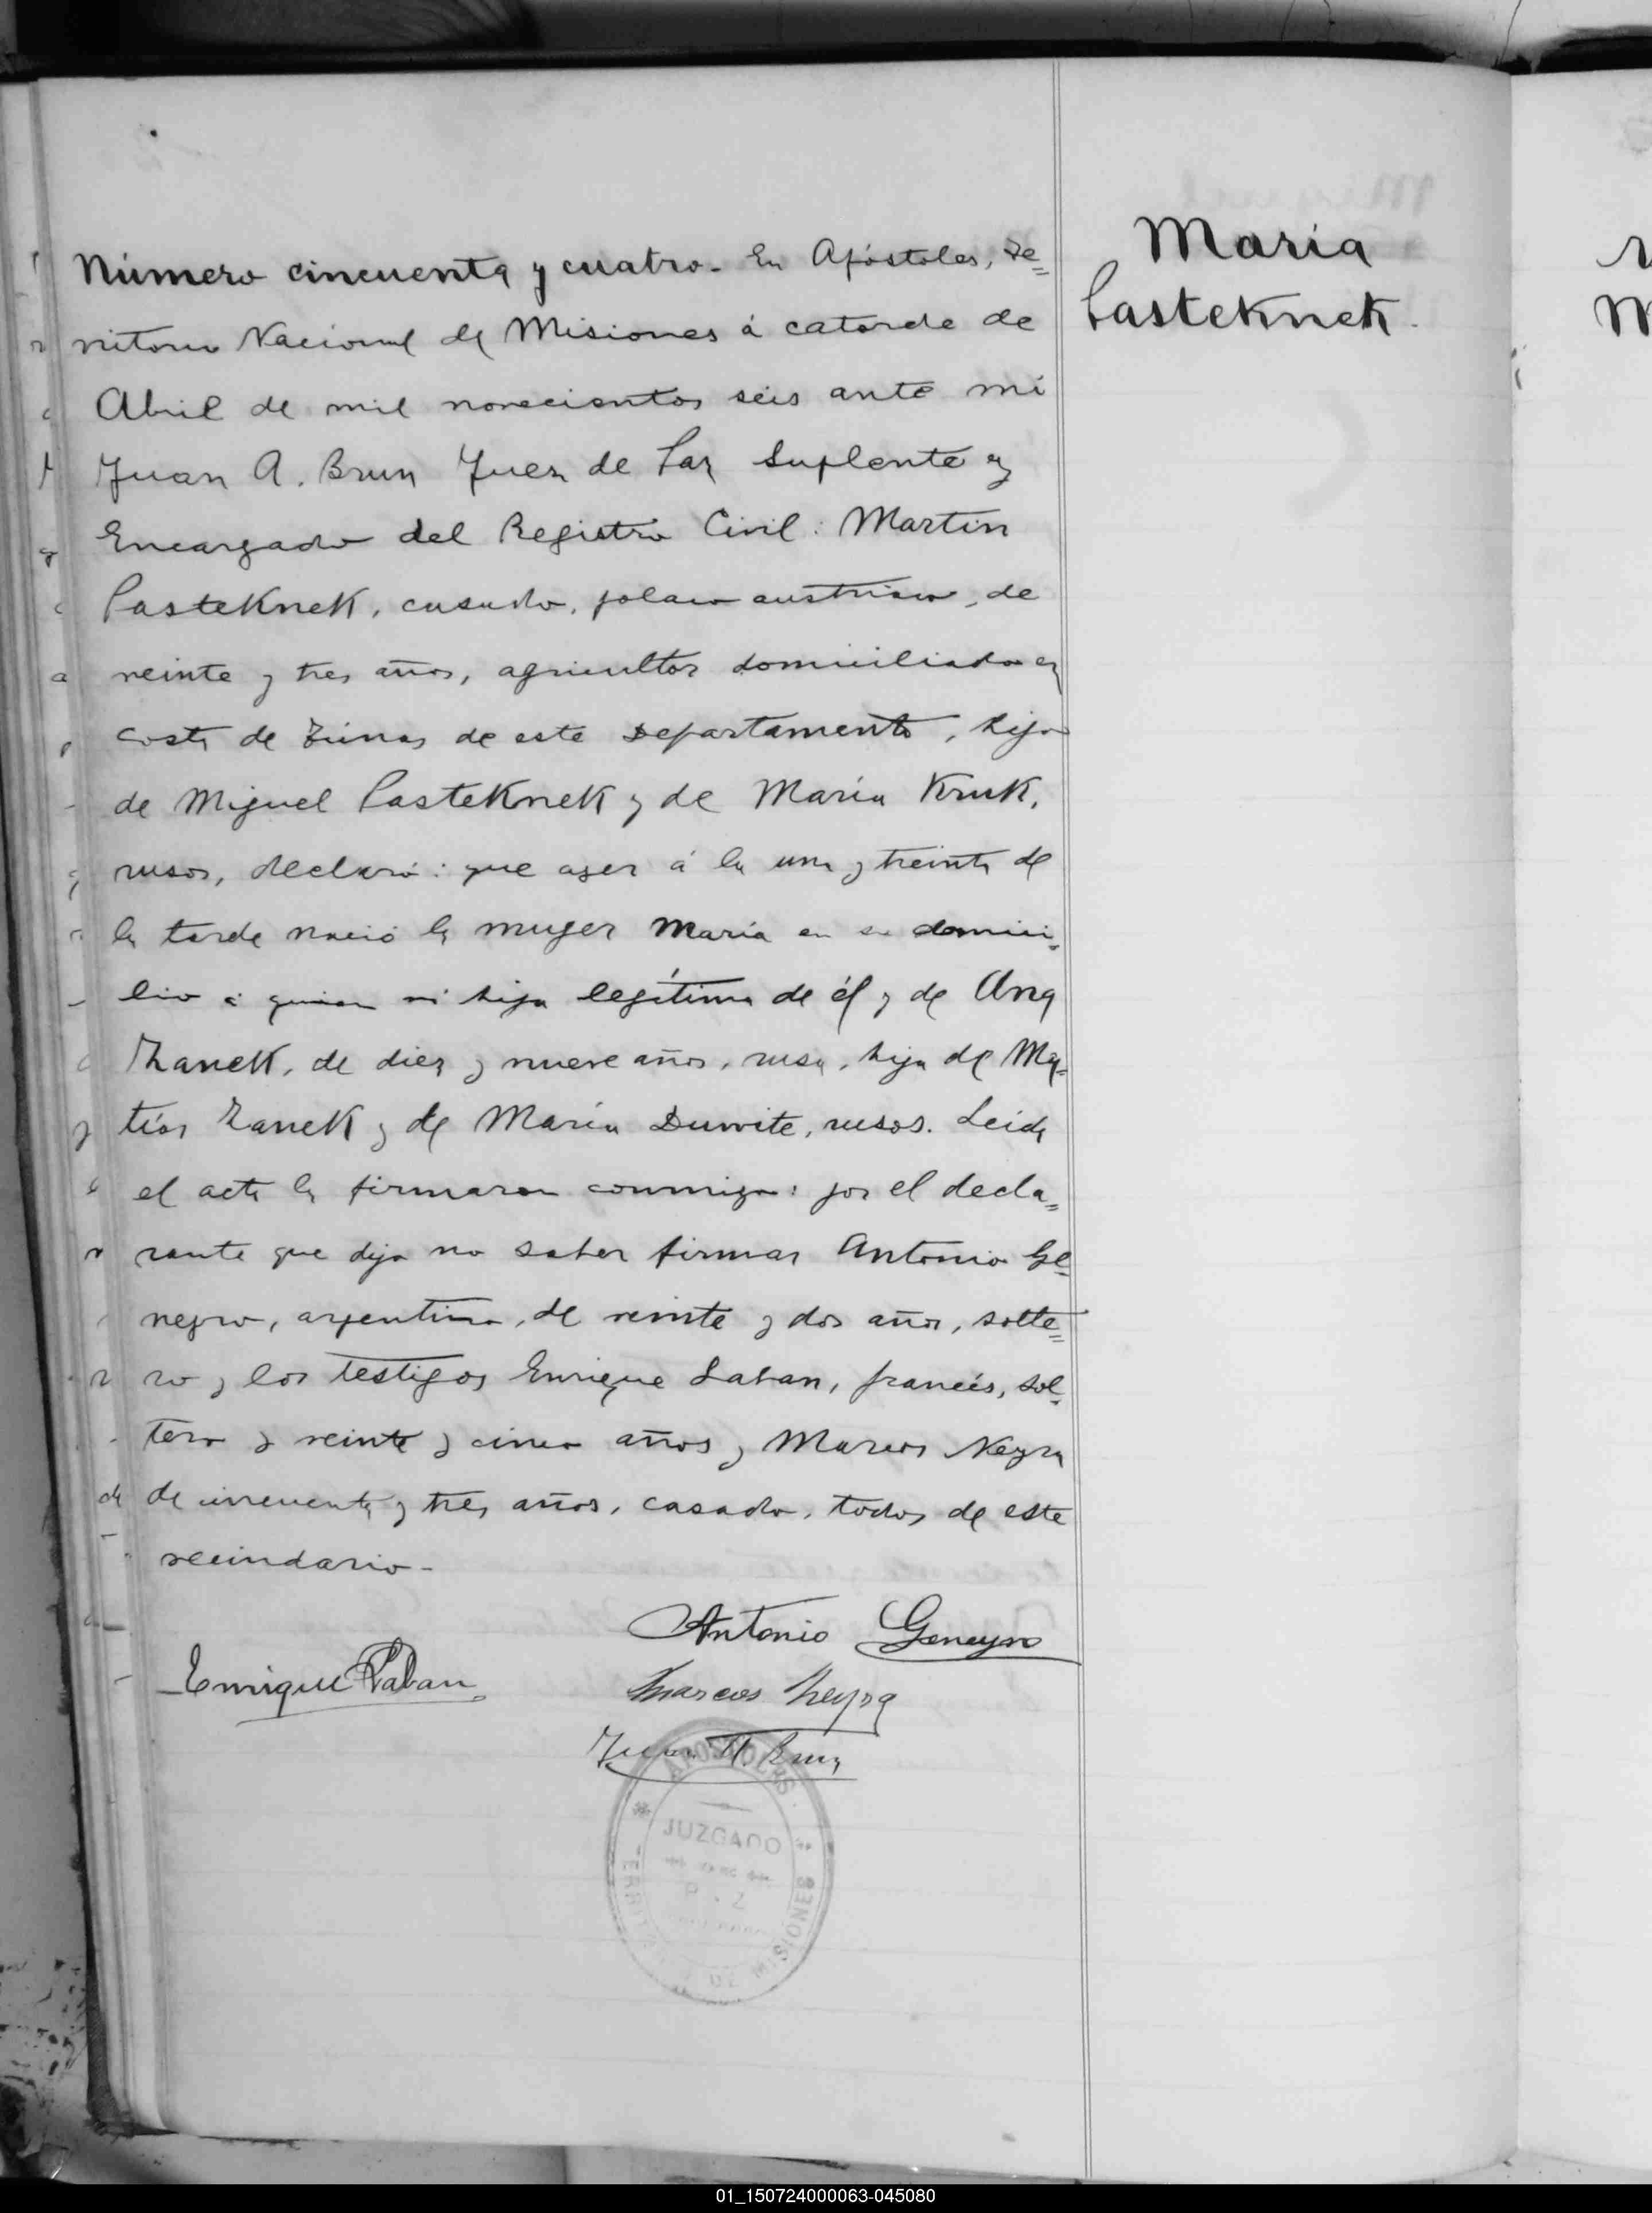 María
Pasteknek.
Número cincuenta y cuatro. En Apóstoles, Te=
rritorio Nacional de Misiones á catorce de
Abril de mil novecientos seis ante mi
Juan A. Brun Juez de Paz Suplente y
Encargado del Registro Civil: Martin
Pasteknek, casado, polaco austriaco, de
veinte y tres años, agricultor domiciliado en
costa de Tunas de este Departamento, hijo
de Miguel Pasteknek y de María Kruk,
rusos, declaró: que ayer á la una y treinta de
la tarde nació la mujer María en su domici=
lio á quien vi hija legítima de él y de Ana
Zanek, de diez y nueve años, rusa, hija de Ma=
tías Zanek y de María Duwite, rusos. Leida
el acta la firmaron conmigo: por el decla=
rante que dijo no saber firmar Antonio Ge=
negro, argentino, de veinte y dos años, solte=
ro y los testigos Enrique Laban, francés, sol=
tero y veinte y cinco años y Marcos Neyra
de cincuenta y tres años, casado, todos de este
vecindario-
Antonio Geneyro
Enrique Laban
Marcos Neyra
Juan A. Brun
APOSTOLES
JUZGADO
DE MISIONES
01_150724000063-045080